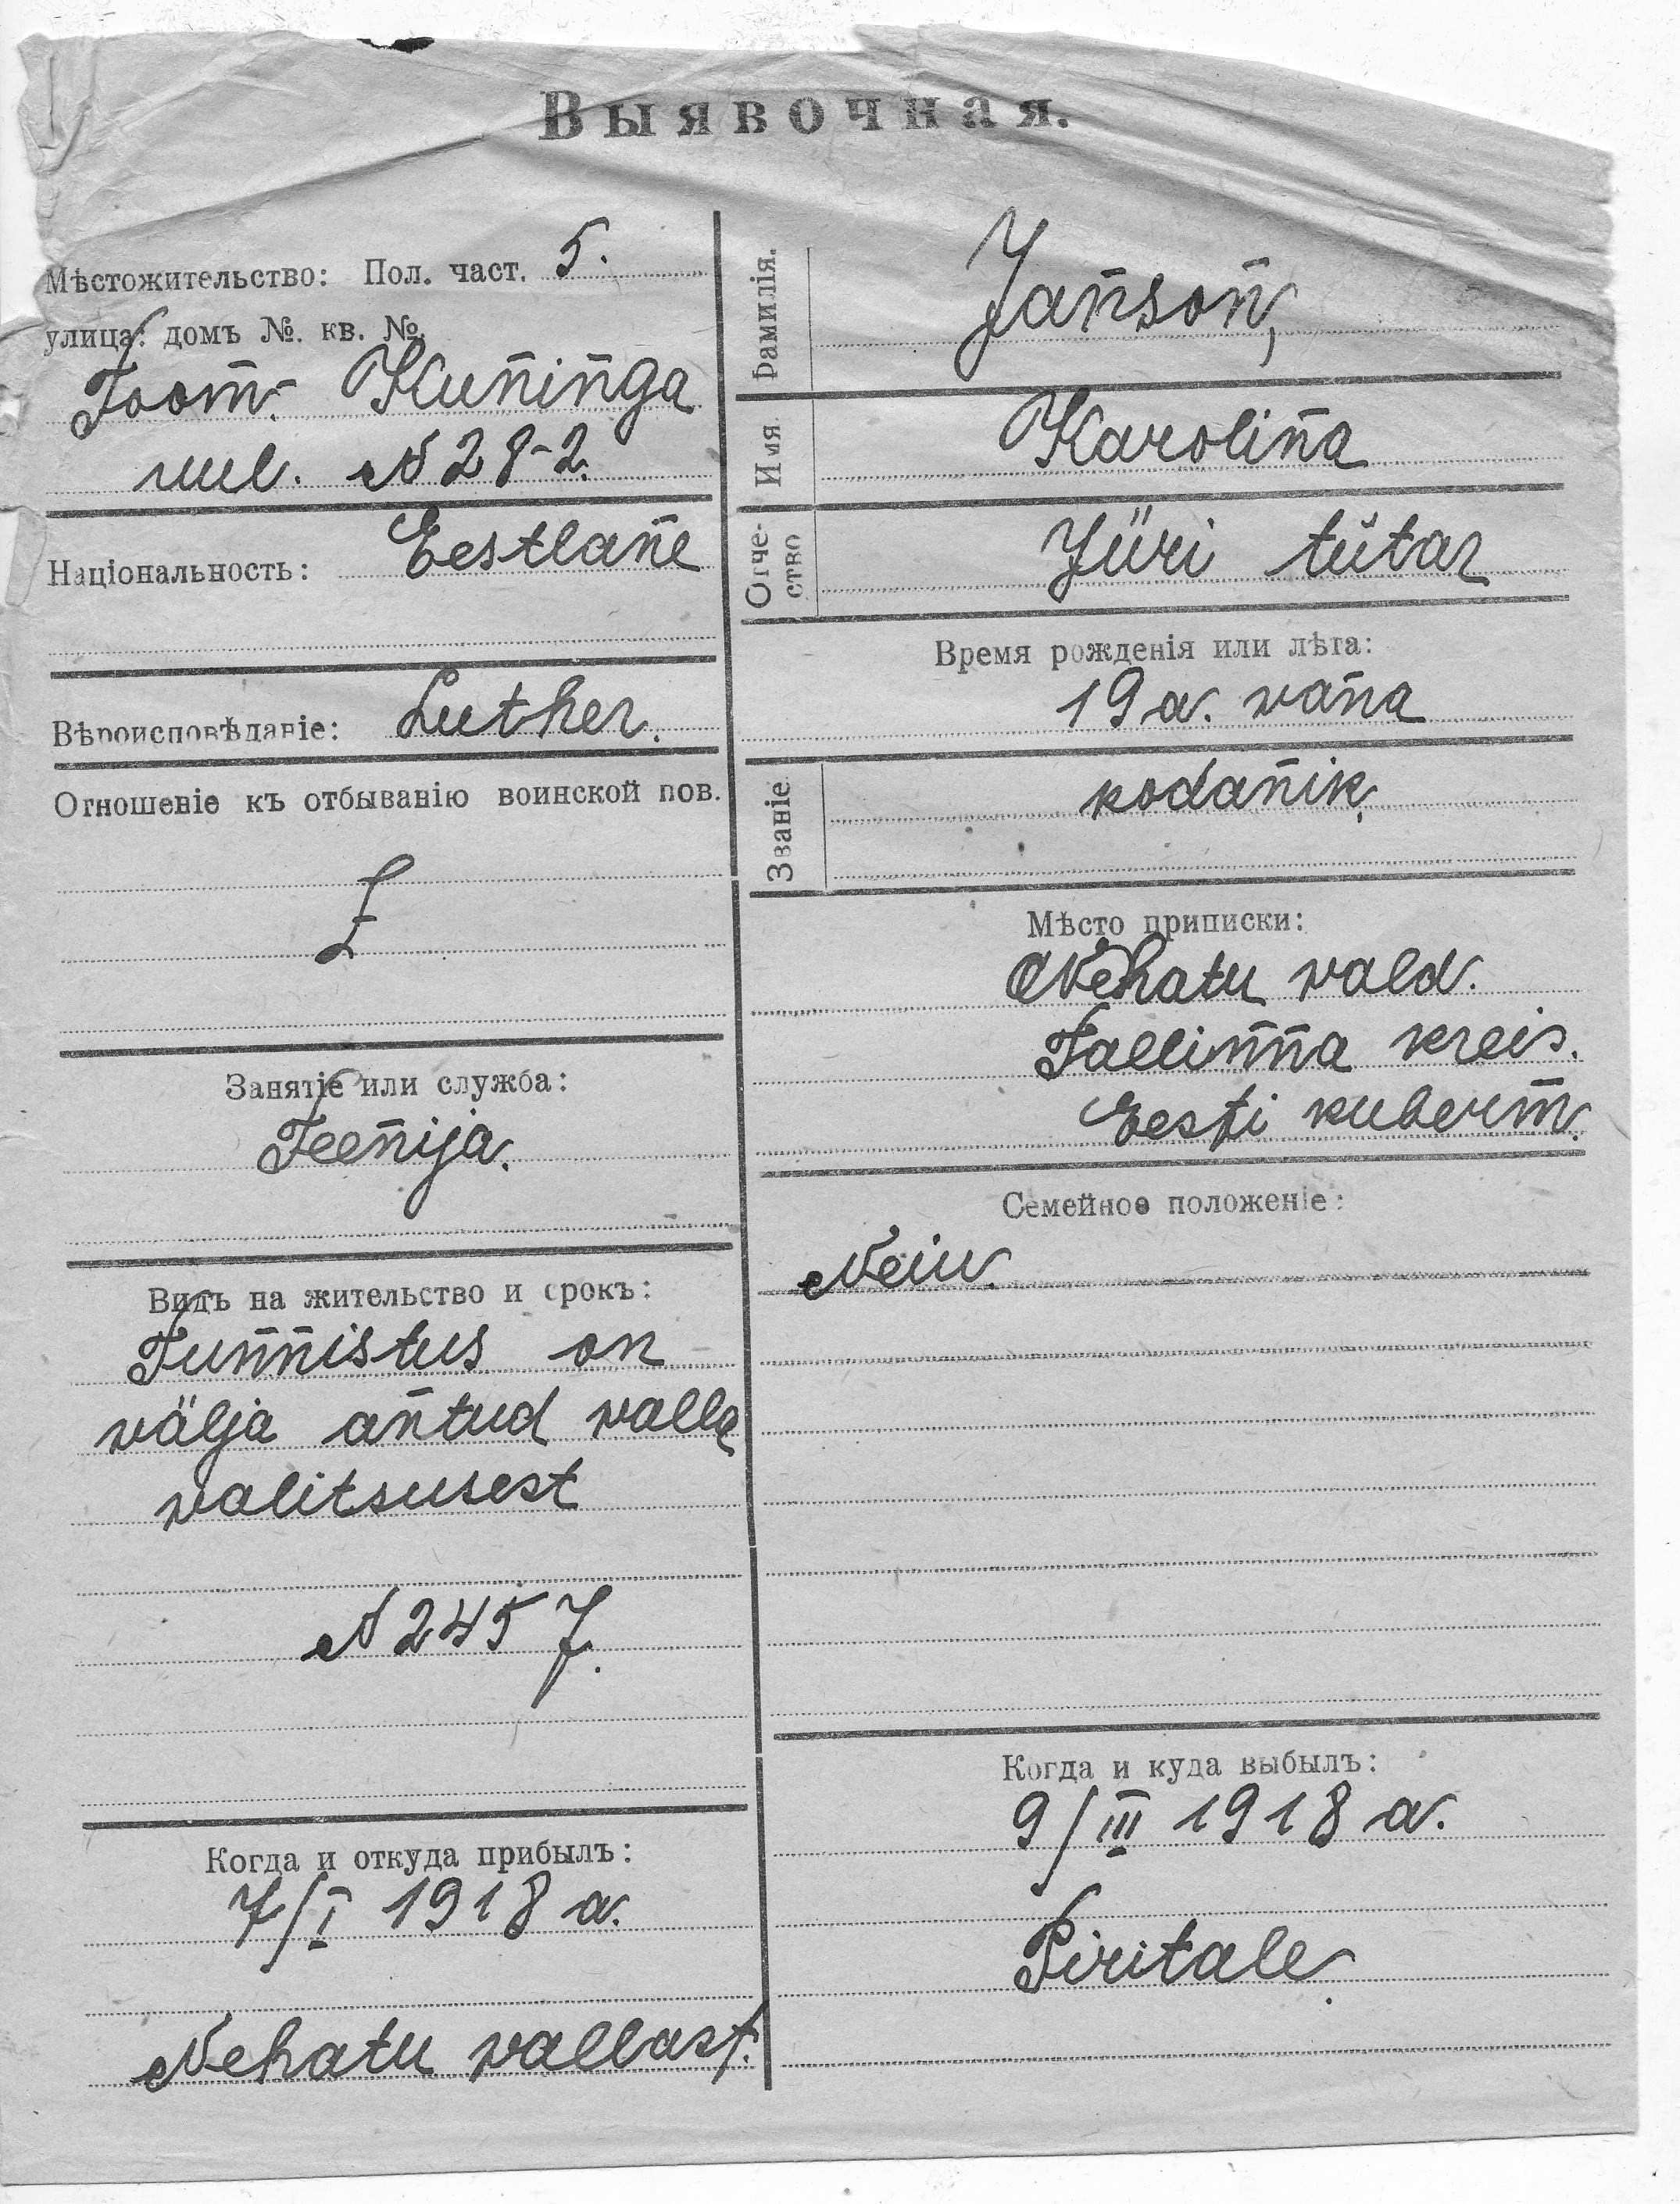 Выявочная.
Мѣстожительство: Пол. част. 5.
улица: домъ №. кв. №
Toom. Kuninga
uul. N 28-2.
Національность: Eestlane
Вѣроисповѣданіе: Luther.
Отношеніе къ отбыванію воинской пов.
Занятіе или служба:
Teenija.
Видъ на жительство и срокъ:
Tunnistus on
välja antud valla
valitsusest
N 2457.
Когда и откуда прибылъ:
7/I 1918 a.
Nehatu vallast.
Фамилія. Janson,
Имя Karolina
Отче-
ство Jüri tütar
Время рожденія или лѣта:
19 a. vana
Званіе kodanik,
Мѣсто приписки:
Nehatu vald.
Tallinna kreis.
Eesti kuberm.
Семейное положеніе:
Neiu.
Когда и куда выбылъ:
9/III 1918 a.
Piritale.